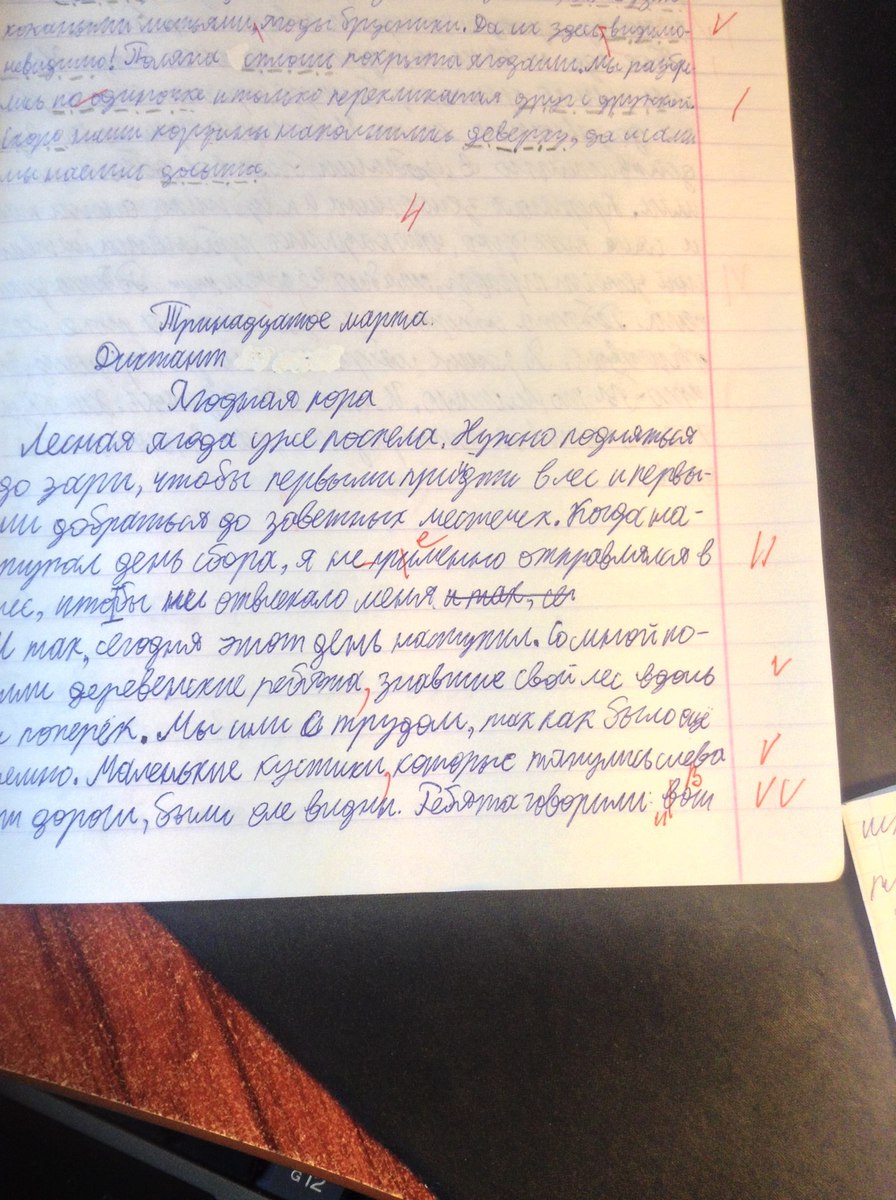 кожаными листьями, ягоды брусники. Да их здесь видимо-
невидимо! Поляна сплошь покрыта ягодами. Мы разбре-
лись по одиночке и только перекликаемся друг с дружкой.
Скоро наши корзины наполнились доверху, да и сами
мы наелись досыта.
4
Тринадцатое марта.
Диктант
Ягодная пора
Лесная ягода уже поспела. Нужно подняться
до зари, чтобы первыми прийти в лес и первы-
ми добраться до заветных местечек. Когда на-
ступал день сбора, я не применно отправлялся в
лес, что бы ни отвлекало меня и так, се
И так, сегодня этот день наступил. Со мной по-
шли деревенские ребята, знавшие свой лес вдоль
и поперёк. Мы шли с трудом, так как было ещё
темно. Маленькие кустики, которые тянулись слева
от дороги, были еле видны. Ребята говорили: вот
G12